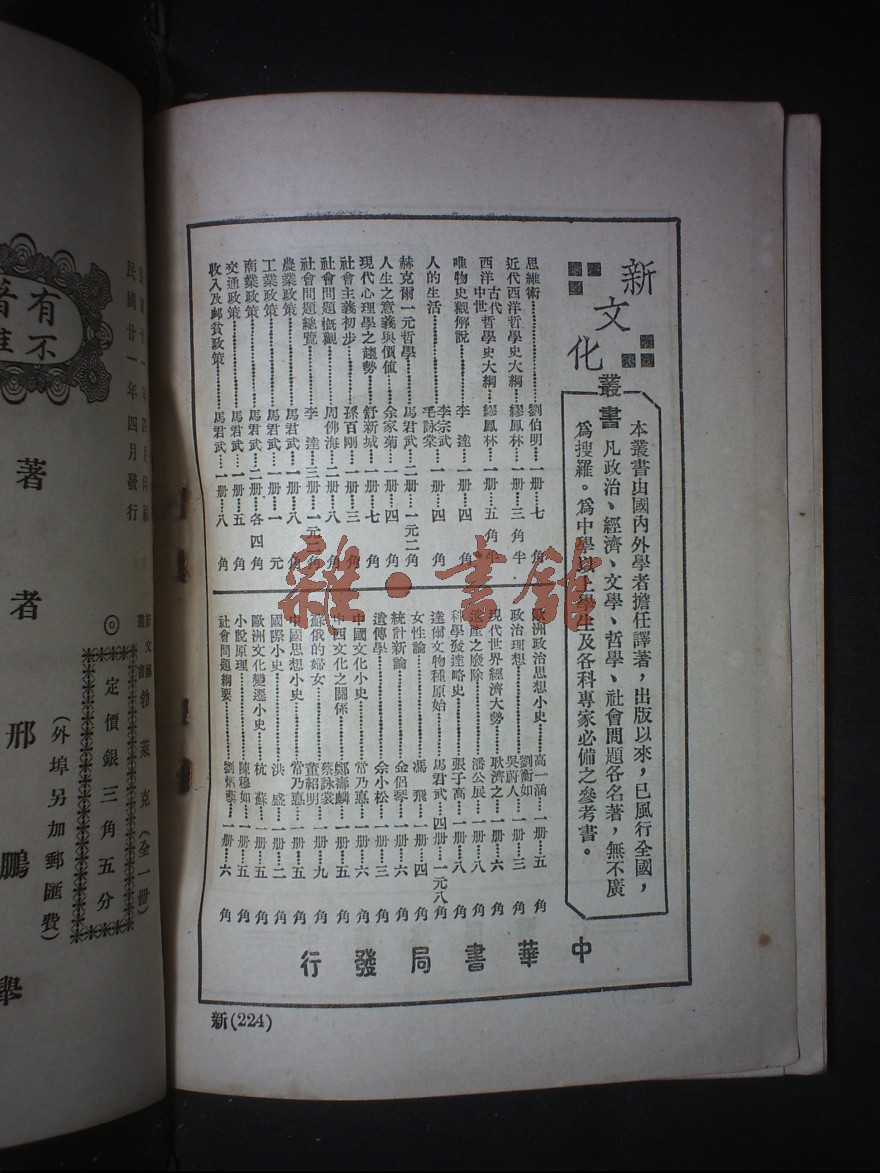 新文化叢書
本叢書由國內外學者擔任譯著,出版以來,已風行全國,
凡政治、經濟、文學、哲學、社會問題各名著,無不廣
爲搜羅。爲中學以上學生及各科專家必備之參考書。
思維術 劉伯明 一册 七角
近代西洋哲學史大綱 繆鳳林 一册 三角半
西洋古代中世哲學史大綱 繆鳳林 一册 五角半
唯物史觀解說 李達 一册 四角
人的生活 李宗武 毛詠棠 一册 四角
赫克爾一元哲學 馬君武 二册 一元二角
人生之意義與價值 余家菊 一册 四角
現代心理學之趨勢 舒新城 一册 七角
社會主義初步 孫百剛 一册 三角
社會問題概觀 周佛海 二册 八角
社會問題總覽 李達 三册 一元二角
農業政策 馬君武 一册 八角
工業政策 馬君武 一册 一元
商業政策 馬君武 二册 各四角
交通政策 馬君武 一册 五角
收入及郵貧政策 馬君武 一册 八角
歐洲政治思想小史 高一涵 一册 五角
政治理想 劉衡如 吳蔚人 一册 三角
現代世界經濟大勢 耿濟之 一册 六角
遺產之廢除 潘公展 一册 八角
科學發達略史 張子高 一册 八角
達爾文物種原始 馬君武 四册 一元八角
女性論 馮飛 一册 四角
統計新論 金侶琴 一册 六角
遺傳學 余小松 一册 三角
中國文化小史 常乃悳 一册 六角
中西文化之關係 鄭壽麟 一册 五角
蘇俄的婦女 蔡詠裳 董紹明 一册 九角
中國思想小史 常乃悳 一册 五角
國際小史 洪盛 一册 二角
歐洲文化變遷小史 杭蘇 一册 五角
小說原理 陳穆如 一册 五角
社會問題綱要 劉炳藜 一册 六角
中華書局發行
新(224)
雜·書館
有
著
不
民國廿一年四月發行
著者 邢鵬舉
◎定價銀三角五分
(外埠另加郵匯費)
勃萊克(全一册)